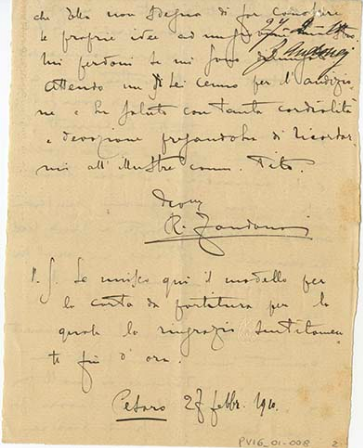 che Ella non sdegna di far conoscere
le proprie idee ad un
Mi perdoni se mi sono
Attendo un di Lei cenno per l'audizio-
ne e La saluto con tanta cordialità
e devozione pregandola di ricordar-
mi all'Illustre comm. Tito.
Devmo
R. Zandonai
P.S. Le unisco qui il modello per
la carta da partitura per la
quale La ringrazio sentitamen-
te fin d'ora.
Pesaro 27 febbr. 1910.
PV16_01.008 2